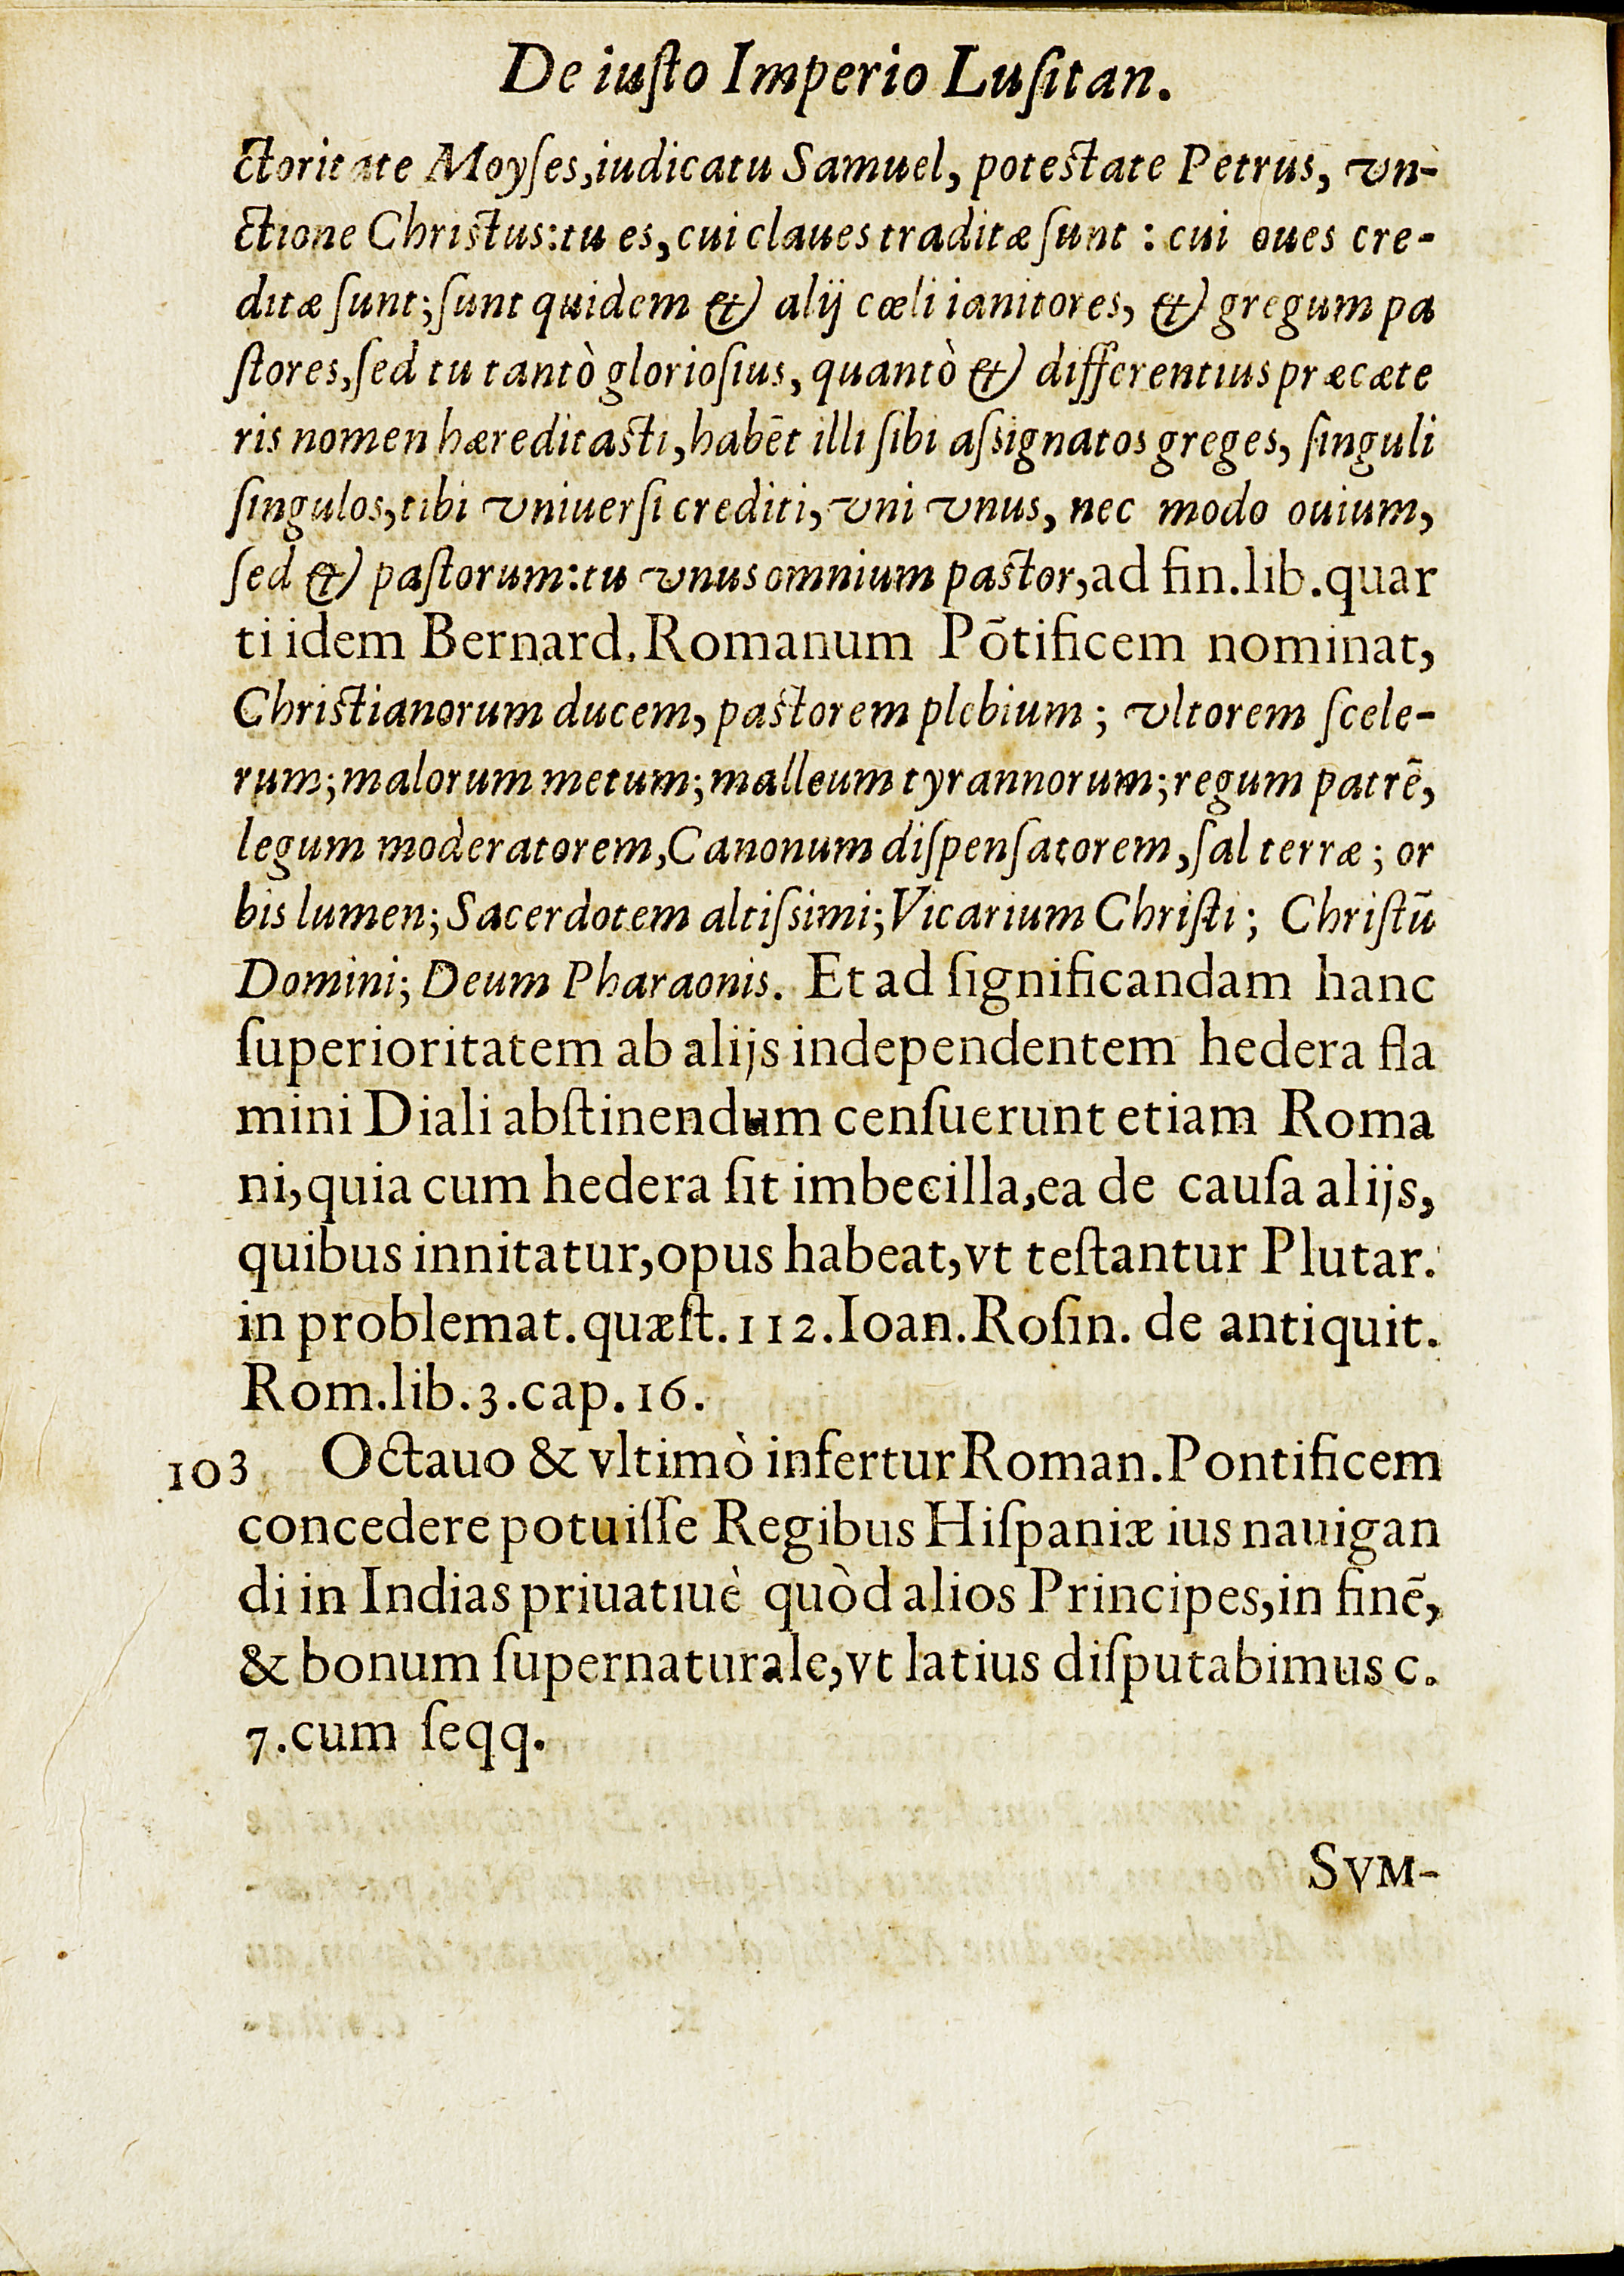 De iuſto Imperio Luſitan.
ctoritate Moyſes, iudicatu Samuel, poteſtate Petrus, vn-
ctione Chriſtus: tu es, cui claues traditæ ſunt : cui oues cre-
ditæ ſunt; ſunt quidem & alij cœli ianitores, & gregum pa
ſtores, ſed tu tantò glorioſius, quantò & differentius præcæte
ris nomen hæreditaſti, habēt illi ſibi aſsignatos greges, ſinguli
ſingulos, tibi vniuerſi crediti, vni vnus, nec modo ouium,
ſed & paſtorum: tu vnus omnium paſtor, ad fin. lib. quar
ti idem Bernard. Romanum Põtificem nominat,
Chriſtianorum ducem, paſtorem plebium ; vltorem ſcele-
rum; malorum metum; malleum tyrannorum; regum patrē,
legum moderatorem, Canonum diſpenſatorem, ſal terræ ; or
bis lumen; Sacerdotem altiſsimi; Vicarium Chriſti ; Chriſtū
Domini; Deum Pharaonis. Et ad ſignificandam hanc
ſuperioritatem ab alijs independentem hedera fla
mini Diali abſtinendum cenſuerunt etiam Roma
ni, quia cum hedera ſit imbecilla, ea de cauſa alijs,
quibus innitatur, opus habeat, vt teſtantur Plutar.
in problemat. quæſt. 112. Ioan. Roſin. de antiquit.
Rom. lib. 3. cap. 16.
103 Octauo & vltimò infertur Roman. Pontificem
concedere potuiſſe Regibus Hiſpaniæ ius nauigan
di in Indias priuatiuè quòd alios Principes, in finē,
& bonum ſupernaturale, vt latius diſputabimus c.
7. cum ſeqq.
SVM-